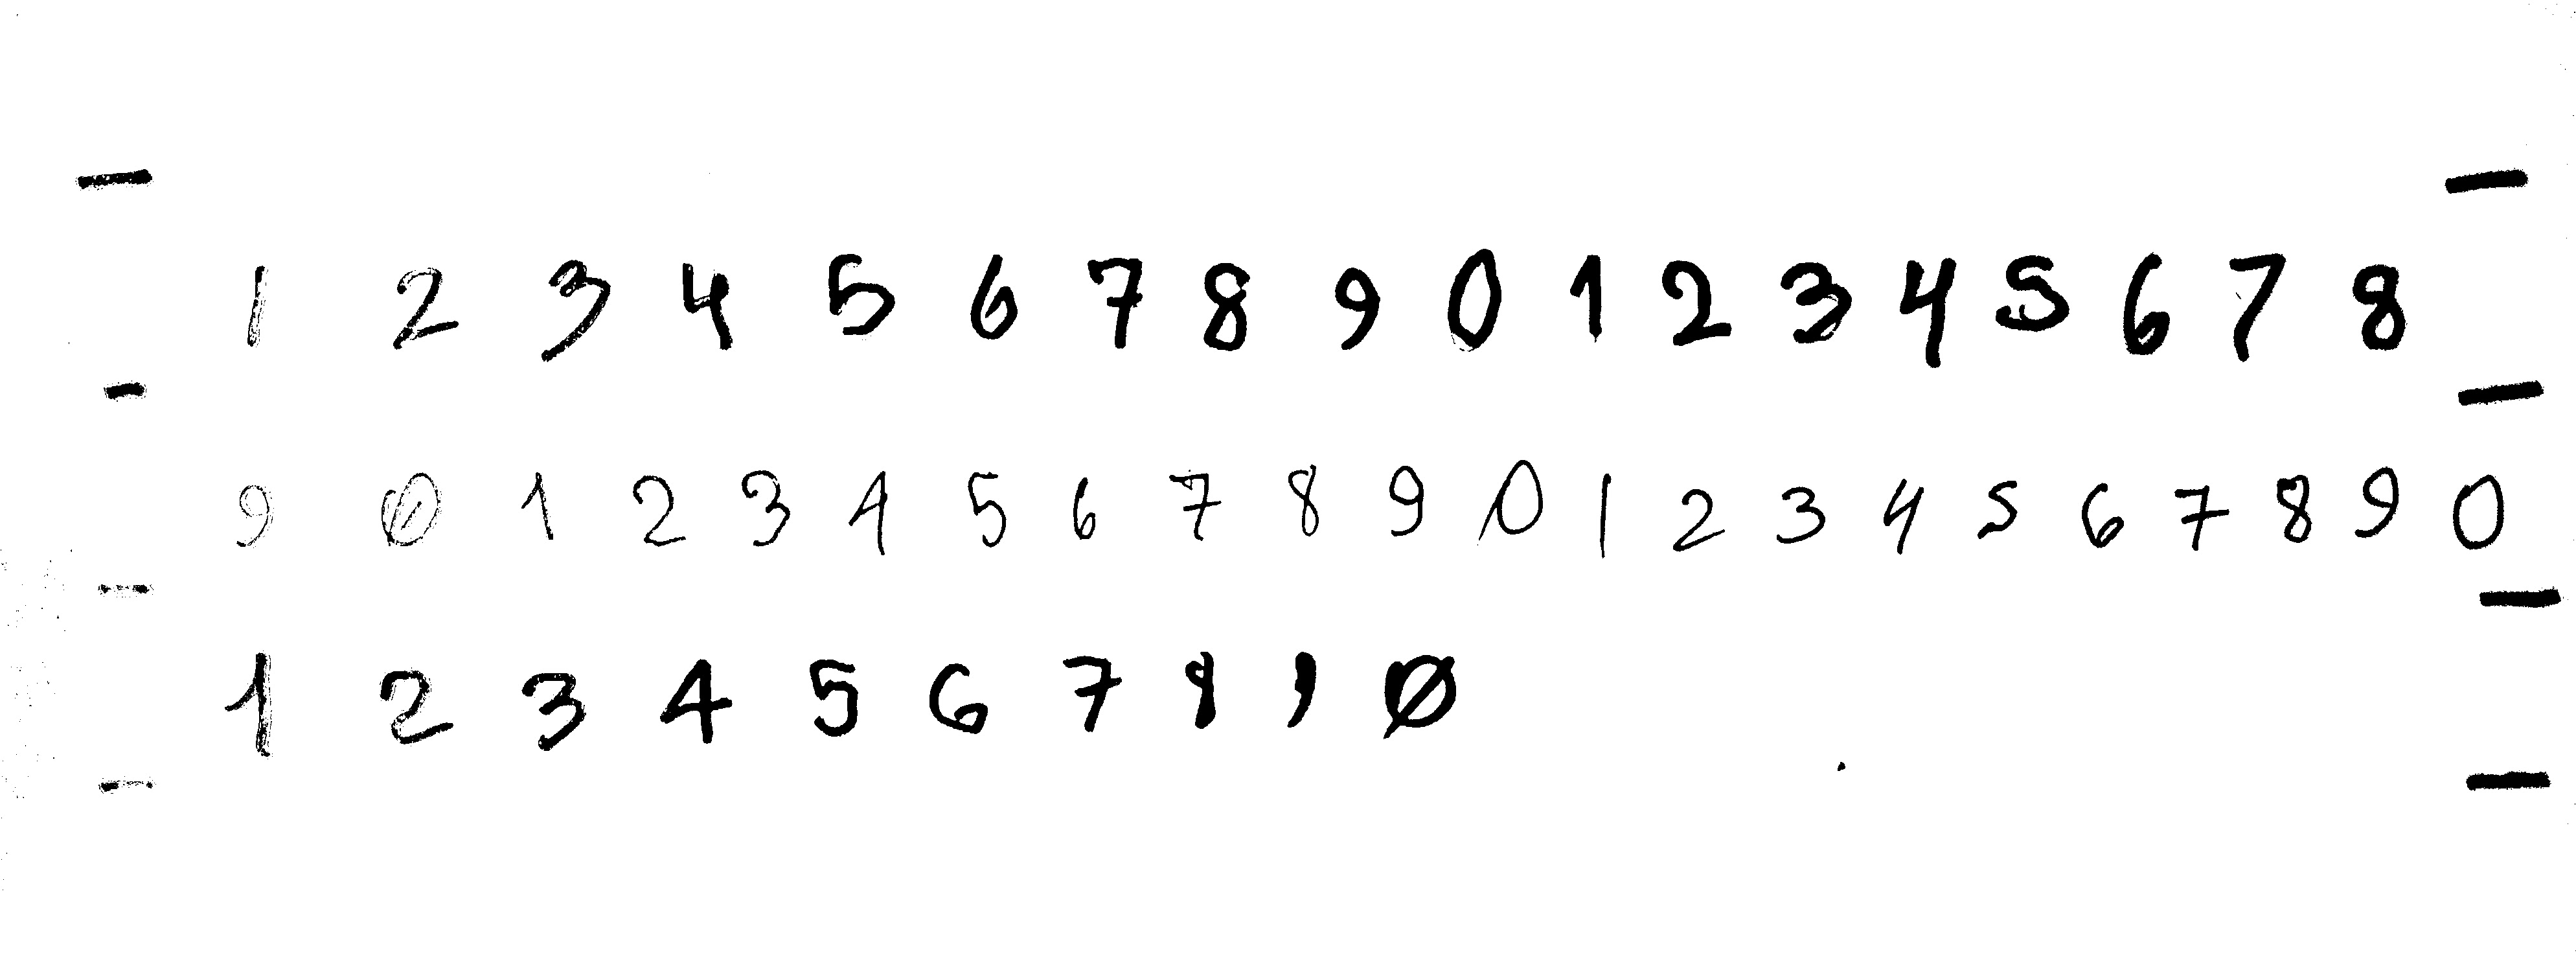 1 2 3 4 5 6 7 8 9 0 1 2 3 4 5 6 7 8
9 0 1 2 3 4 5 6 7 8 9 0 1 2 3 4 5 6 7 8 9 0
1 2 3 4 5 6 7 8 9 0